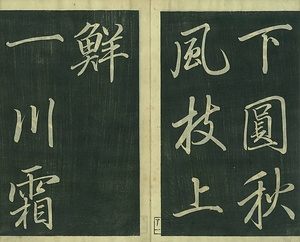 下圓秋
風枝上
鮮
一川霜